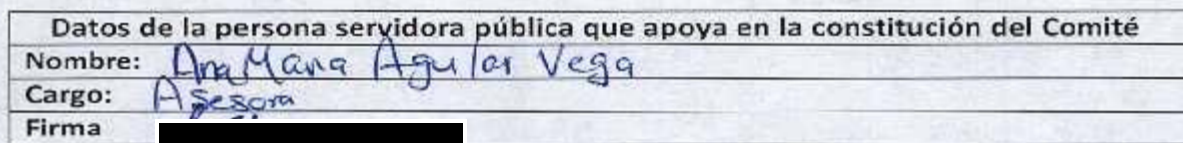 Datos de la persona servidora pública que apoya en la constitución del Comité
Nombre: Ana Maria Aguilar Vega
Cargo: Asesora
Firma